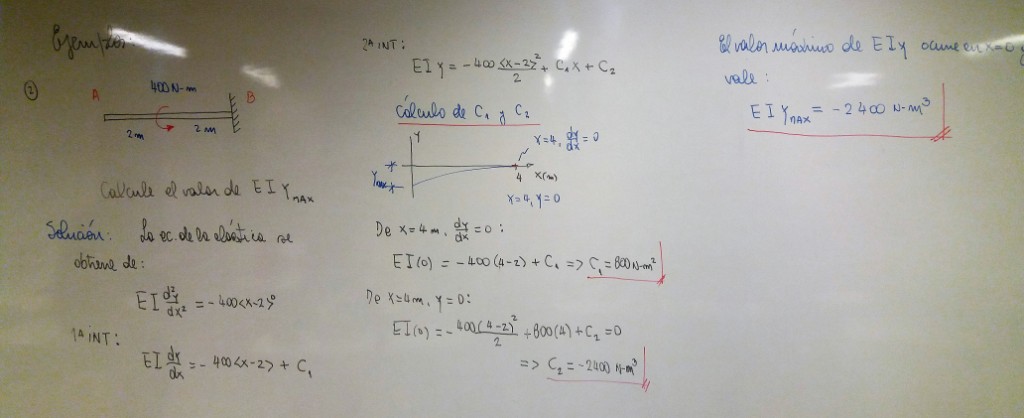 Ejemplos:
②
400 N-m
A
B
2m
2m
Calcule el valor de EI Y_MAX
Solución: La ec. de la elástica se
obtiene de:
EI d²y/dx² = -400<x-2>⁰
1ª INT:
EI dy/dx = -400<x-2> + C₁
2ª INT:
EI y = -400<x-2>²/2 + C₁x + C₂
Cálculo de C₁ y C₂
Y
x=4, dy/dx = 0
Ymax
4
X(m)
x=4, y=0
De x=4m, dy/dx = 0:
EI(0) = -400(4-2) + C₁ => C₁ = 800 N-m²
De x=4m, y=0:
EI(0) = -400(4-2)²/2 + 800(4) + C₂ = 0
=> C₂ = -2400 N-m³
El valor máximo de EIy ocurre en x=0 y
vale:
EI Y_MAX = -2400 N-m³